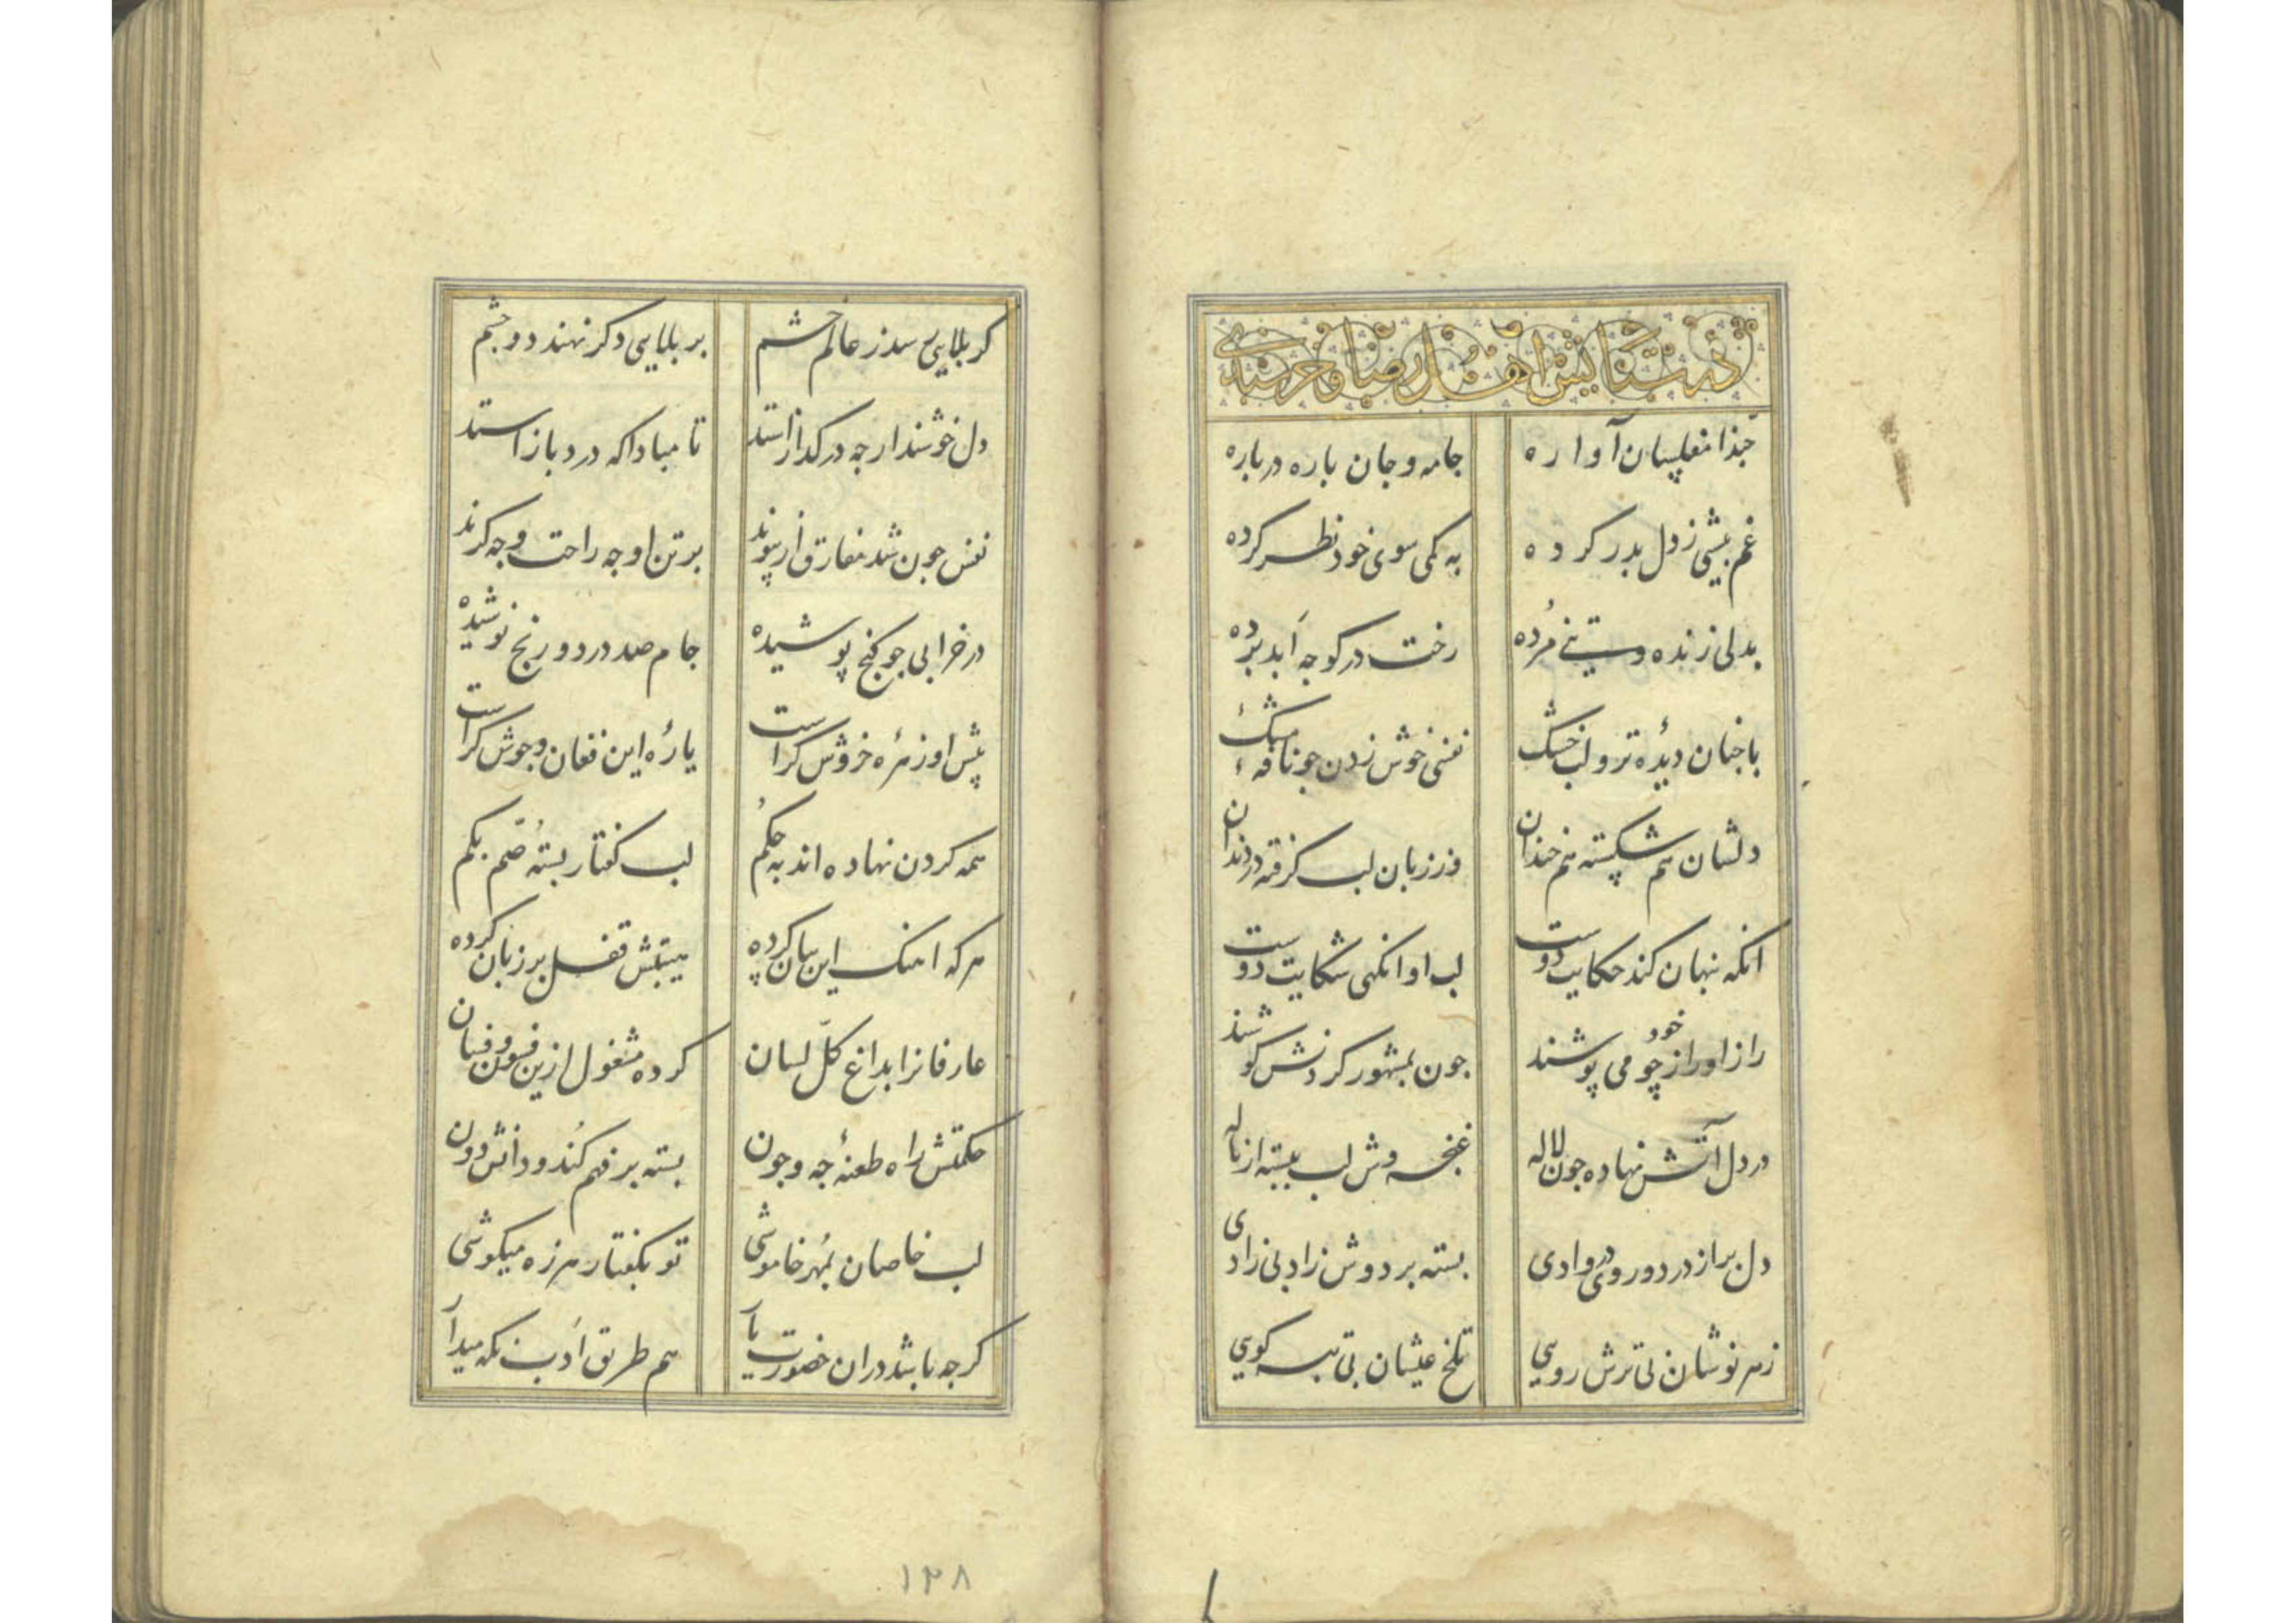 در ستایش اهل رضا و خرسندی
حبّذا مفلسان آواره جامه و جان باره در باره
غم بیشی ز دل بدر کرده به کمی سوی خود نظر کرده
بدلی زنده و سینی مُرده رخت در کوجه اَبد بُرده
با جنان دیدهٔ تر و لب خشک نفسی خوش زدن جو نافهٔ مشک
دلشان هم شکسته هم خندان وز زبان لب کرفته در دندان
انکه نبهان کند حکایت دوست لب او انکهی شکایت دوست
راز او را ز خود جو می پوشند جون بمشهور کردنش کوشند
در دل آتش نهاده جون لاله غنجه وش لب ببسته از ناله
دل بر از درد و روی در وادی بسته بر دوش زاد بی زادی
زهر نوشان بی ترش رویی تلخ عیشان بی تبه کویی
کر بلایی رسد ز عالم خشم بر بلایی دکر نهند دو جشم
دل خوشند ار جه در کداز استند تا مباداکه درد باز استد
نفس جون شد مفارق از پیوند بر تن او جه راحت و جه کزند
در خرابی جو کنج پوشیده جام صد درد و رنج نوشیده
پیش او زهرهٔ خروش کراست یارهٔ این فغان و جوش کراست
همه کردن نهاده اند به حکُم لب کفتار بسته صُمّ بکم
هر که اهنک این بیان کرده هیبتش قفل بر زبان کرده
عارفانرا بداغ کلّ لسان کرده مشغول ازین فسون و فسان
حکمتش راه طعنهٔ جه و جون بسته بر فهم کُند و دانش دون
لب خاصان بمُهر خاموشی تو بکفتار هرزه میکوشی
کر جه باشد در ان حضورت یار هم طریق اَدب نکه میدار
۱۲۸